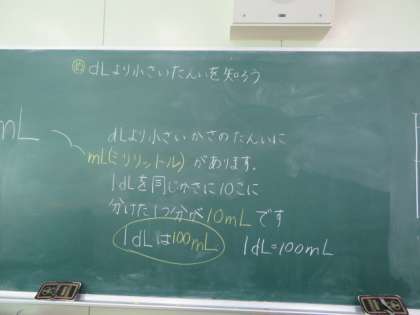 め dLより小さいたんいを知ろう
mL
dLより小さいかさのたんいに
mL(ミリリットル)があります.
1dLを同じかさに10こに
分けた1つ分が10mLです
1dLは100mL 1dL=100mL